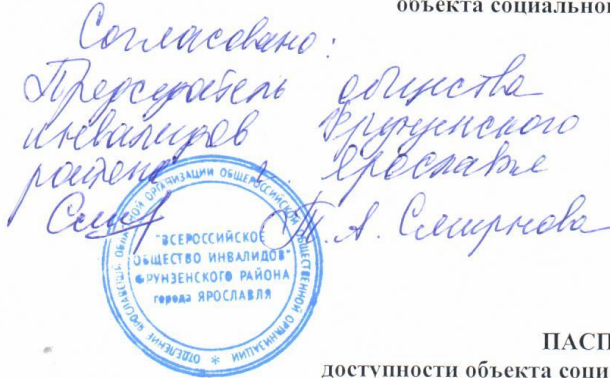 объекта социально
Согласовано:
Председатель общества
инвалидов Фрунзенского
района г. Ярославля
Т. А. Смирнова
ОТДЕЛЕНИЕ ЯРОСЛАВСКОЙ ОБЛАСТНОЙ ОРГАНИЗАЦИИ ОБЩЕРОССИЙСКОЙ ОБЩЕСТВЕННОЙ ОРГАНИЗАЦИИ
"ВСЕРОССИЙСКОЕ
ОБЩЕСТВО ИНВАЛИДОВ"
ФРУНЗЕНСКОГО РАЙОНА
города ЯРОСЛАВЛЯ
ПАСП
доступности объекта соци